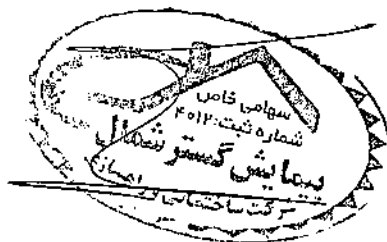 سهامی خاص
شماره ثبت: ۴۰۱۲
پیمایش گستر شمال
شرکت ساختمانی و